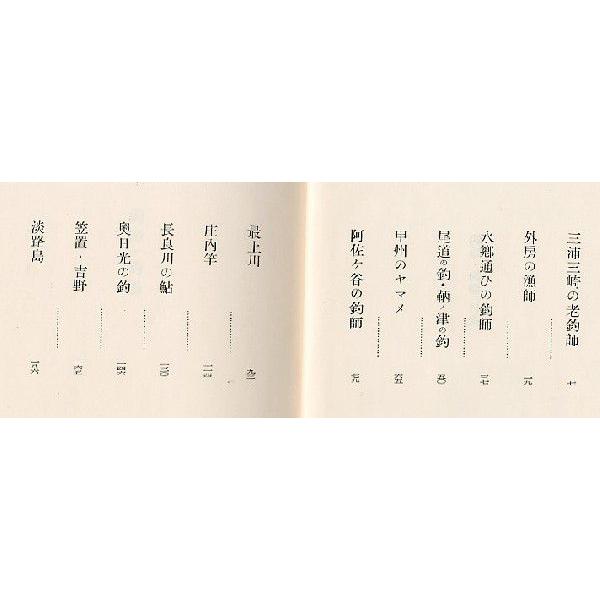 三浦三崎の老釣師 七
外房の漁師 一九
水郷通ひの釣師
尾道の釣・鞆ノ津の釣 五〇
甲州のヤマメ 六五
阿佐ケ谷の釣師 七九
最上川
庄内竿 一一四
長良川の鮎 一三〇
奥日光の釣 一四六
笠置・吉野
淡路島 一八六